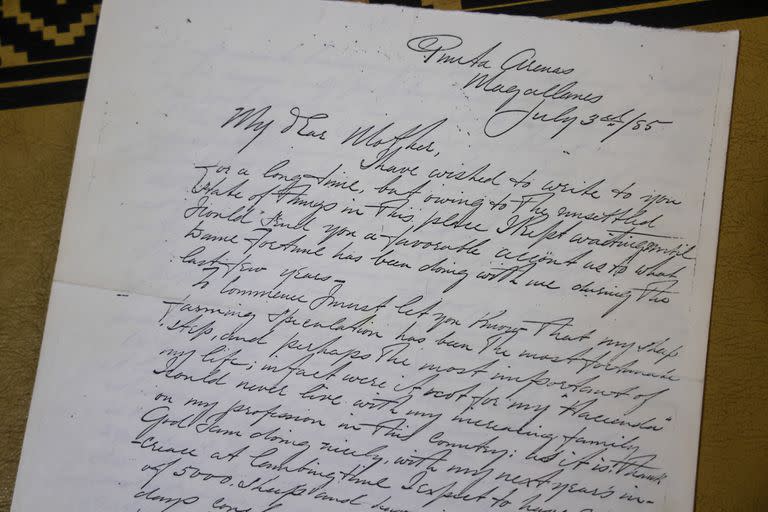 Punta Arenas
Magallanes
July 3rd/85
My dear Mother,
I have wished to write to you
for a long time, but owing to the unsettled
state of things in this place I kept waiting until
I could send you a favourable account as to what
Dame Fortune has been doing with me during the
last few years-
To commence I must let you know that my sheep
farming speculation has been the most fortunate
step, and perhaps the most important of
my life; in fact were it not for my "Hacienda"
I could never live with my increasing family
on my profession in this country; as it is thank
God I am doing nicely, with my next year's in-
crease at lambing time I expect to have
of 5000 sheep and
days